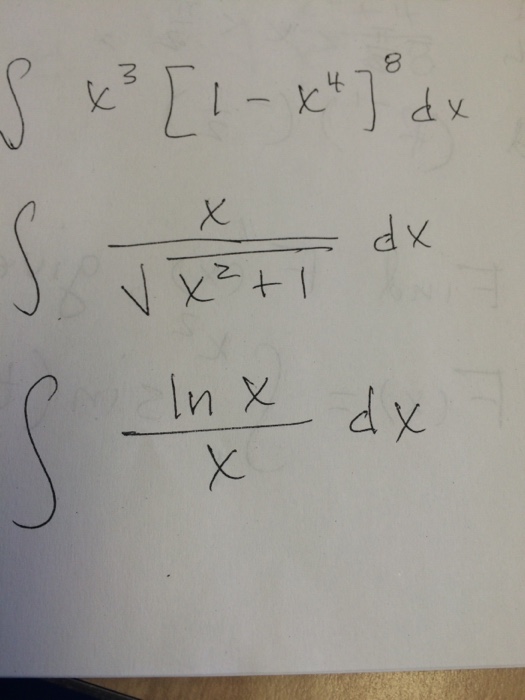 ∫ x³ [1 - x⁴]⁸ dx
∫ x/√(x²+1) dx
∫ ln x / x dx